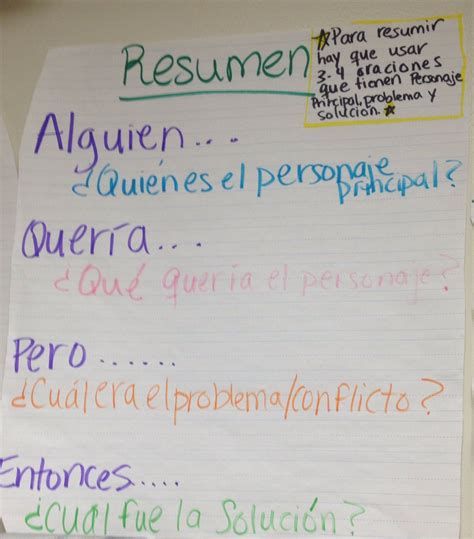 Resumen
☆Para resumir
hay que usar
3-4 oraciones
que tienen Personaje
Principal, problema y
solución.☆
Alguien...
¿Quién es el personaje
principal?
Quería...
¿Qué quería el personaje?
Pero......
¿Cuál era el problema/conflicto?
Entonces.....
¿Cuál fue la Solución?